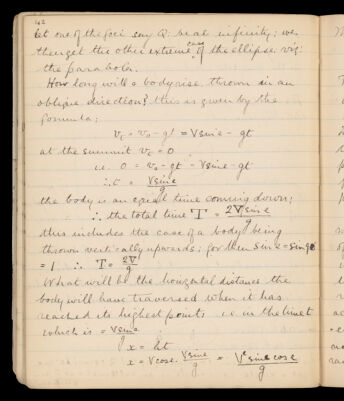 162
let one of the foci say Q: be at infinity; we
then get the other extreme case of the ellipse: viz:
the parabola.
How long will a body rise, thrown in an
oblique direction? this is given by the
formula;
v₁ = v₀ - gt = V sin e - gt
at the summit v₁ = 0
i.e. 0 = v₀ - gt = V sin e - gt
∴ t = V sin e / g
the body is an equal time coming down;
∴ the total time T = 2V sin e / g
this includes the case of a body being
thrown vertically upwards; for then sin e = sin 90
= 1 ∴ T = 2V / g
What will be the horizontal distance the
body will have traversed when it has
reached its highest point; i.e. in the time t
which is = V sin e / g
x = at
x = V cos e . V sin e / g = V² sin e cos e / g